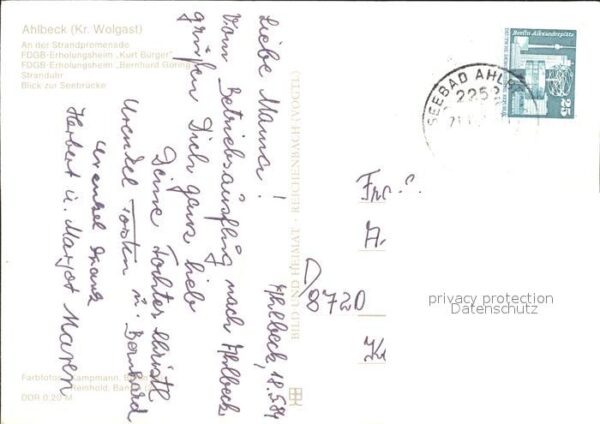 Ahlbeck (Kr. Wolgast)
An der Strandpromenade
FDGB-Erholungsheim „Kurt Bürger"
FDGB-Erholungsheim „Bernhard Göring"
Stranduhr
Blick zur Seebrücke
Ahlbeck, 18.5.84
Liebe Mama!
Vom Betriebsausflug nach Ahlbeck
grüßen Dich ganz lieb
Deine Tochter Christl
Urenkel Torsten u. Bernhard
Urenkel
Herbert u. Margot Maren
BILD UND HEIMAT · REICHENBACH (VOGTL)
Berlin Alexanderplatz
25
SEEBAD AHLB
2252
Fr
A.
D/8720
K
privacy protection
Datenschutz
Farbfotos: Kampmann,
Reinhold,
DDR 0,20 M